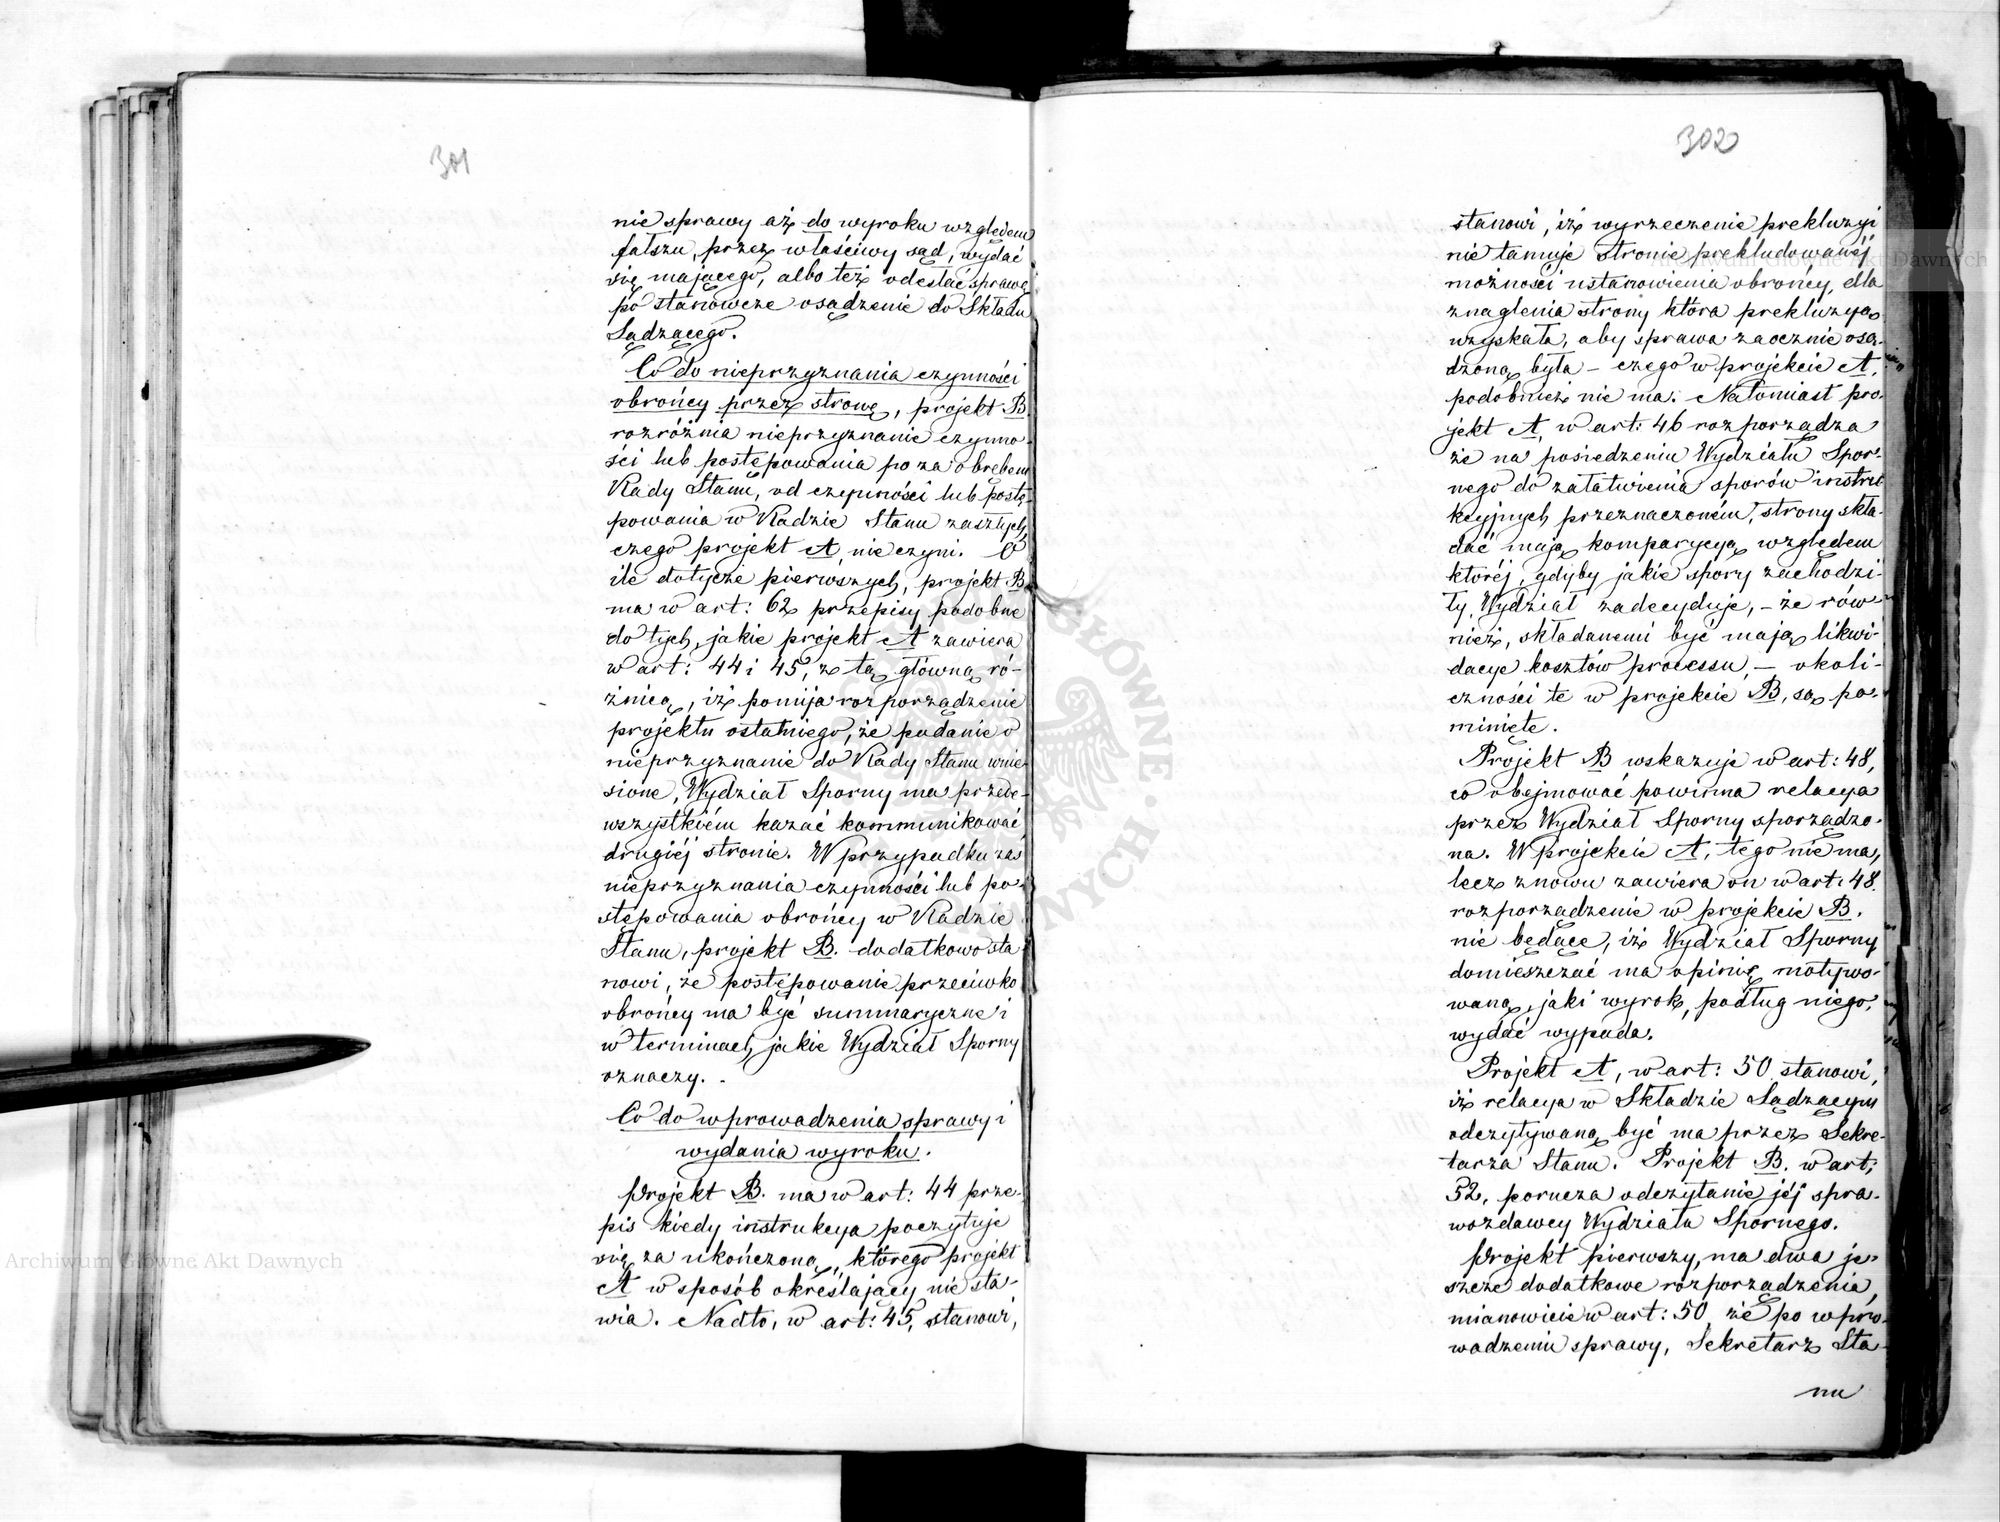 301
nie sprawy aż do wyroku względem
fałszu, przez właściwy sąd, wydać
się mającego, albo też odesłać sprawę
po stanowcze osądzenie do Składu
Sądzącego.
Co do nieprzyznania czynności
obrońcy przez stronę, projekt B.
rozróżnia nieprzyznanie czynno-
ści lub postępowania po za obrębem
Rady Stanu, od czynności lub postę-
powania w Radzie Stanu zaszłych,
czego projekt A nie czyni. O
ile dotycze pierwszych, projekt B
ma w art: 62 przepisy podobne
do tych, jakie projekt A zawiera
w art: 44 i 45, z tą główną ró-
żnicą, iż pomija rozporządzenie
projektu ostatniego, że podanie o
nieprzyznanie do Rady Stanu wnie-
sione, Wydział Sporny ma przede-
wszystkiém kazać kommunikować
drugiéj stronie. W przypadku zaś
nieprzyznania czynności lub po-
stępowania obrońcy w Radzie
Stanu, projekt B. dodatkowo sta-
nowi, że postępowanie przeciwko
obrońcy ma być summaryczne i
w terminach, jakie Wydział Sporny
oznaczy.
Co do wprowadzenia sprawy i
wydania wyroku.
Projekt B. ma w art: 44 prze-
pis kiedy instrukcya poczytuje
się za ukończoną, którego projekt
A w sposób określający nie sta-
wia. Nadto, w art: 45, stanowi,
302
stanowi, iż wyrzeczenie prekluzyi
nie tamuje stronie prekludowanéj
możności ustanowienia obrońcy, dla
znaglenia strony która prekluzyą
uzyskała, aby sprawa zaocznie osą-
dzoną była – czego w projekcie A,
podobnież nie ma. Natomiast pro-
jekt A, w art: 46 rozporządza
że na posiedzeniu Wydziału Spor-
nego do załatwienia sporów instruk-
kcyjnych przeznaczoném, strony skła-
dać mają komparycyą względem
któréj, gdyby jakie spory zachodzi-
ły, Wydział zadecyduje, – że rów-
nież, składanemi być mają likwi-
dacye kosztów processu, – okoli-
czności te w projekcie B, są po-
minięte.
Projekt B wskazuje w art: 48,
co obejmować powinna relacya
przez Wydział Sporny sporządzo-
na. W projekcie A, tego nie ma,
lecz znowu zawiera on w art: 48.
rozporządzenie w projekcie B.
nie będące, iż Wydział Sporny
domieszczać ma opinię motywo-
waną, jaki wyrok, podług niego,
wydać wypada.
Projekt A, w art: 50 stanowi,
iż relacya w Składzie Sądzącym
odczytywaną być ma przez Sekre-
tarza Stanu. Projekt B. w art:
52, porucza odczytanie jéj spra-
wozdawcy Wydziału Spornego.
Projekt pierwszy, ma dwa je-
szcze dodatkowe rozporządzenia,
mianowicie w art: 50, że po wpro-
wadzeniu sprawy, Sekretarz Sta-
nu
Archiwum Główne Akt Dawnych
Archiwum Główne Akt Dawnych